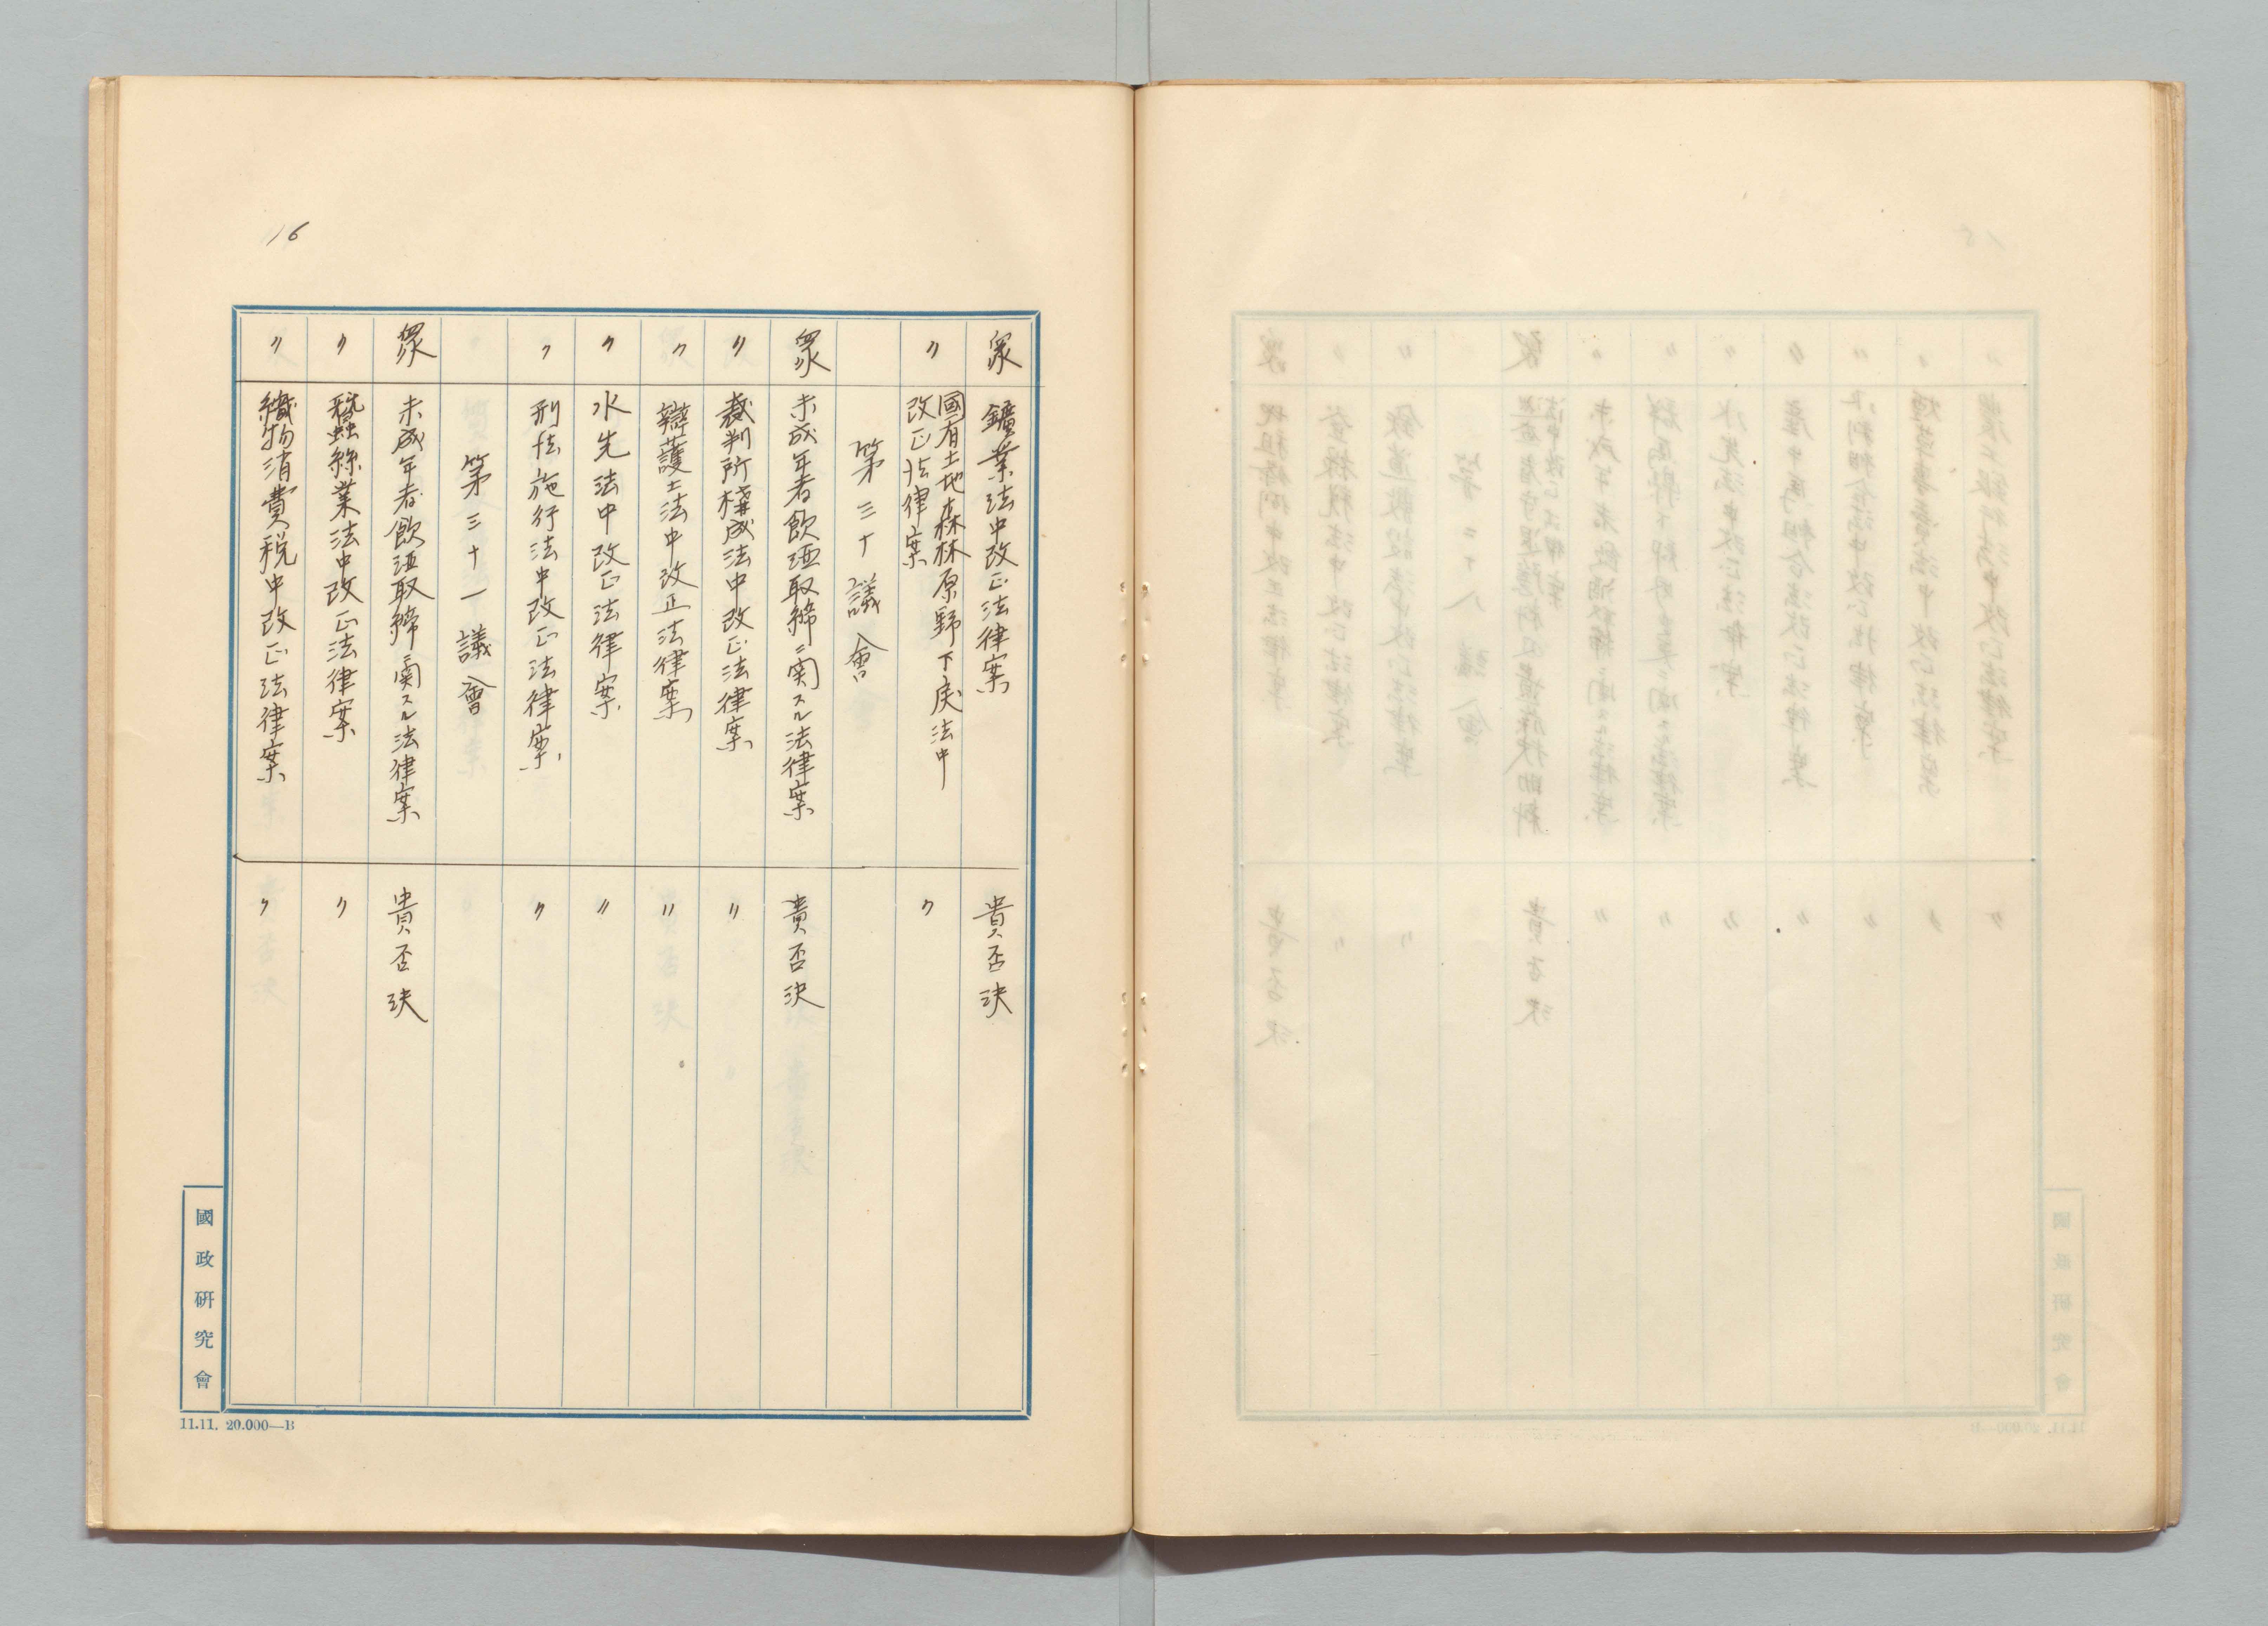 16
衆 鑛業法中改正法律案 貴否決
〃 國有土地森林原野下戻法中
改正法律案 〃
第三十議會
衆 未成年者飲酒取締ニ関スル法律案 貴否決
〃 裁判所構成法中改正法律案 〃
〃 辯護士法中改正法律案 〃
〃 水先法中改正法律案 〃
〃 刑法施行法中改正法律案 〃
第三十一議會
衆 未成年者飲酒取締ニ関スル法律案 貴否決
〃 蠶絲業法中改正法律案 〃
〃 織物消費税中改正法律案 〃
國政研究會
11.11. 20.000—B